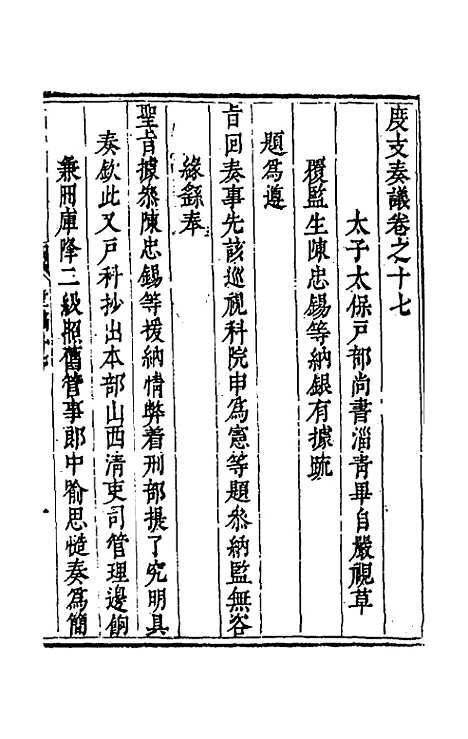 度支奏議卷之十七
太子太保戶部尚書淄青畢自嚴視草
覆監生陳忠錫等納銀有據疏
題為遵
旨回奏事先該巡視科院申為憲等題叅納監無咨
緣繇奉
聖旨據叅陳忠錫等援納情弊着刑部提了究明具
奏欽此又戶科抄出本部山西清吏司管理邊餉
兼冊庫降二級照舊管事郎中喻思慥奏為簡